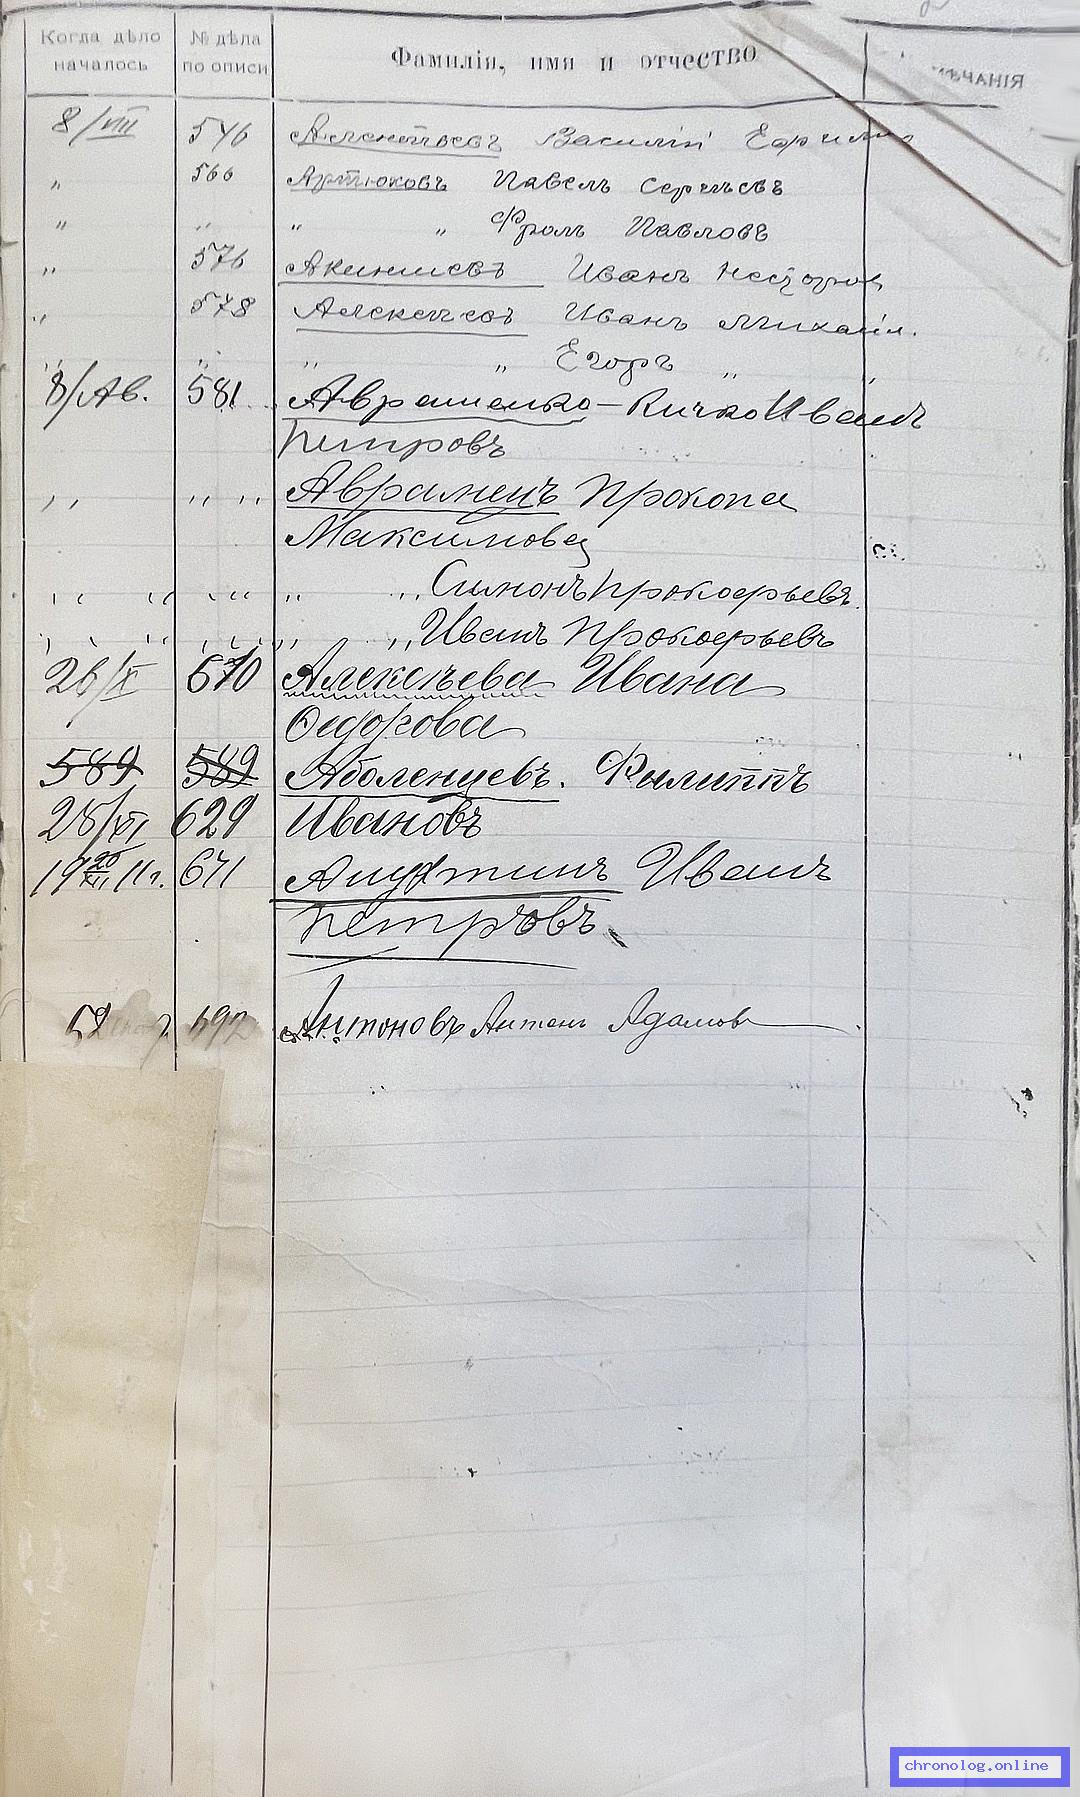 Когда дѣло началось № дѣла по описи Фамилія, имя и отчество ѣчанія
8/VIII 546 Василій
" 566 Артюховъ Павелъ Сергѣевъ
" " " " Фролъ Павловъ
" 576 Акиншевъ Иванъ Несторов
" 578 Алексѣевъ Иванъ Михайл.
" " " " Егоръ " "
8/Ав. 581 Авраменко-Кичко Иванъ
Петровъ
" " " Авраменъ Прокопа
Максимова
" " " " " " Симонъ Прокофьевъ
" " " " " " Иванъ Прокофьевъ
26/X 610 Алексѣева Ивана
Федорова
589 589 Аболенцевъ. Филиппъ
28/XI 629 Ивановъ
19 20/XII 11г. 671 Иванъ
Петровъ
592 Антоновъ Антонъ Адамов
chronolog.online